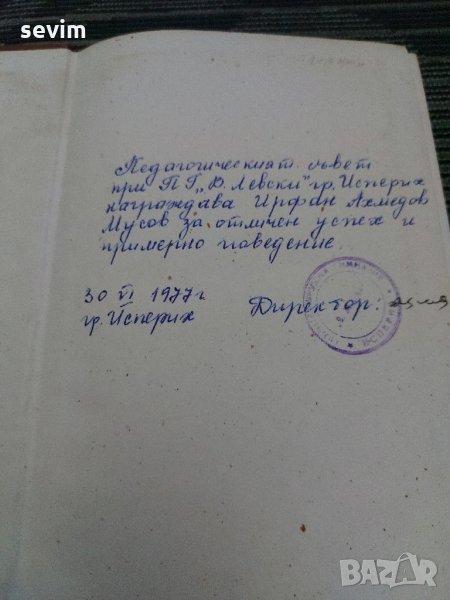 sevim
Педагогическият съвет
при ПГ „В. Левски" гр. Исперих
награждава Ирфан Ахмедов
Мусов за отличен успех и
примерно поведение.
30 VI 1977 г
гр. Исперих
Директор:
BAZAR